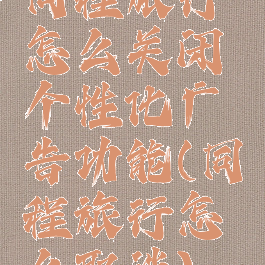 同程旅行
怎么关闭
个性化广
告功能(同
程旅行怎
么删单)